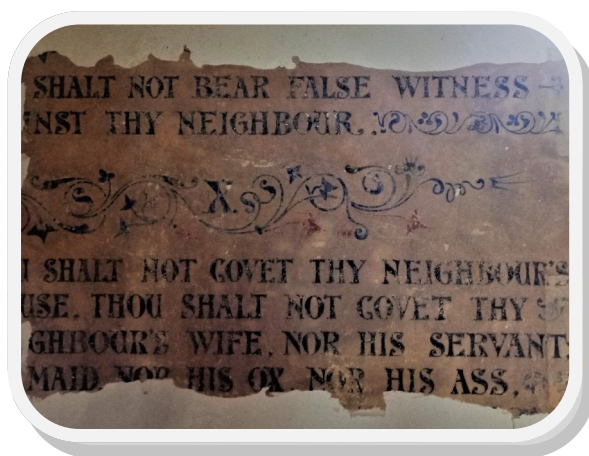 SHALT NOT BEAR FALSE WITNESS
INST THY NEIGHBOUR.
X.
U SHALT NOT COVET THY NEIGHBOUR'S
USE. THOU SHALT NOT COVET THY
GHBOUR'S WIFE, NOR HIS SERVANT,
MAID, NOR HIS OX, NOR HIS ASS,